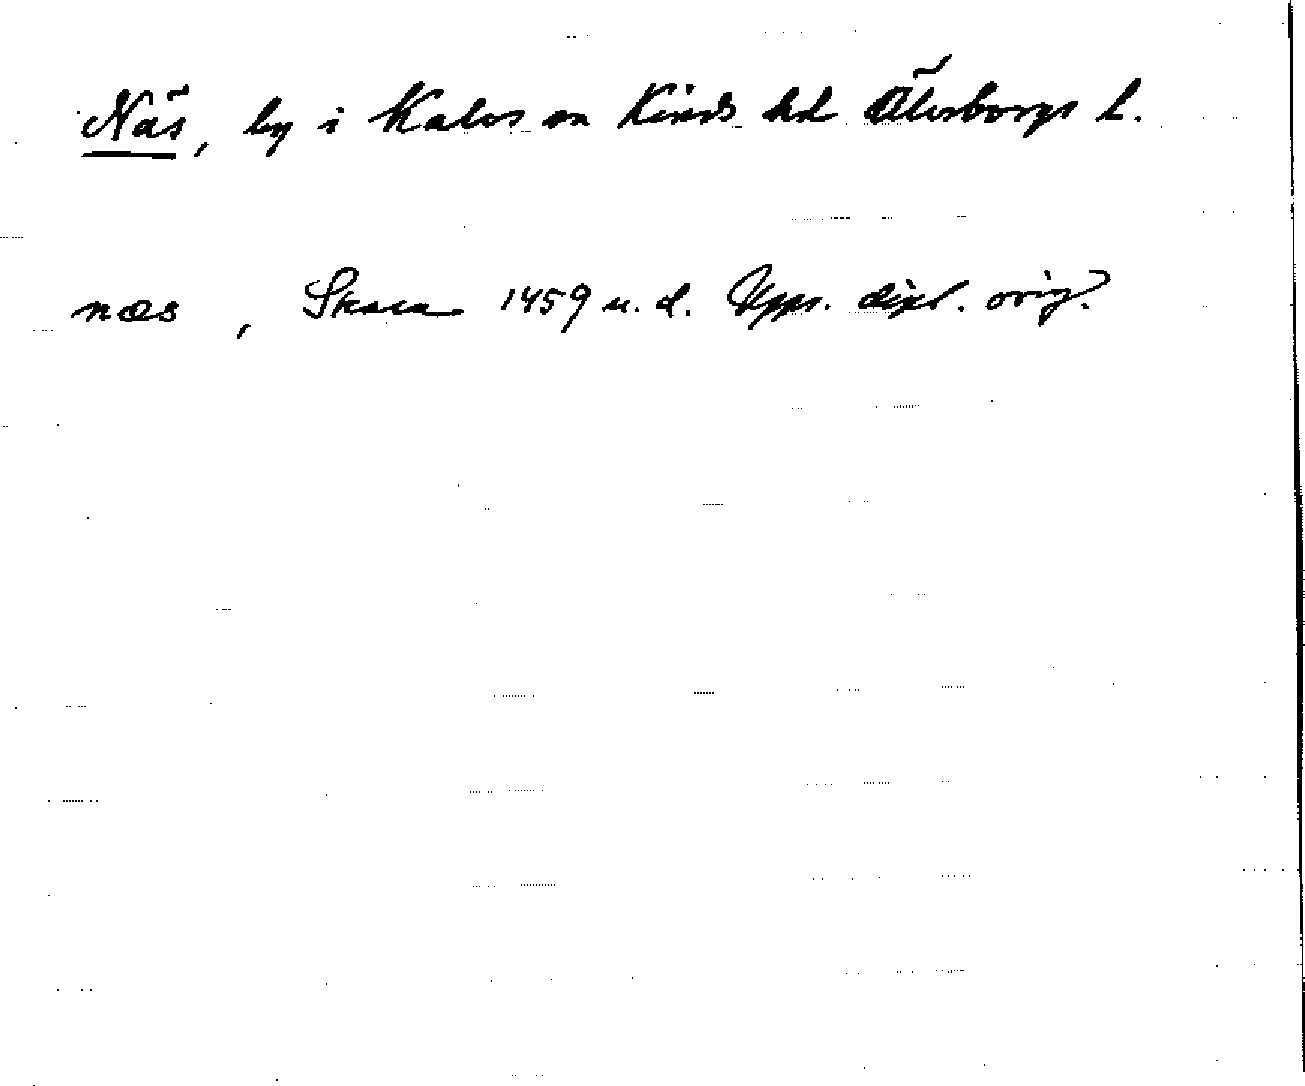 Näs, by i Kalvs sn Kinds hd Älvsborgs l.
næs, Skara 1459 u. d. Upps. dipl. orig.